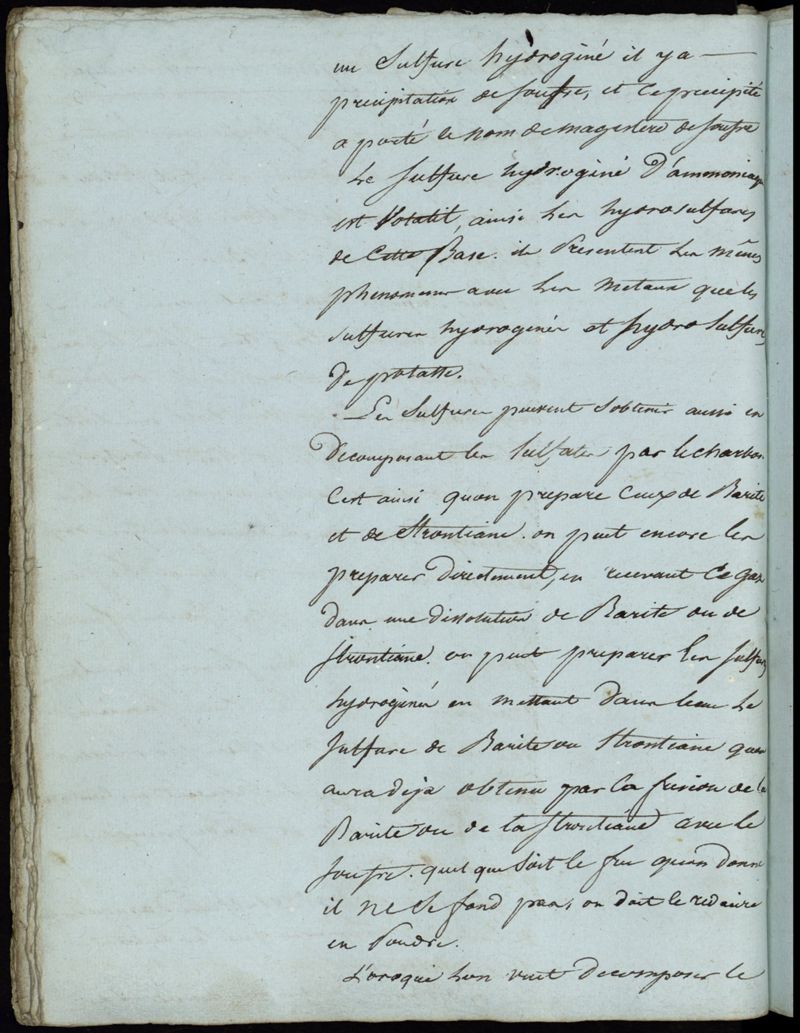 un Sulfure hydroginé il ya —
precipitation de souffre, et ce precipité
a porté le nom de magestere de souffre
Le sulfure hydroginé D'ammoniaque
est Volatil, ainsi Les hydrosulfures
de Cette Base. ils Presentent Les mêmes
phenomenes avec Les Metaux que les
sulfures hydroginés et hydro Sulfures
De potasse.
Les Sulfures peuvent s'obtenir aussi en
Decomposant les Sulfates par le charbon
C'est ainsi quon prepare Ceux de Barite
et de Strontiane. on peut encore les
preparer Directement, en recevant Ce gaz
Dans une dissolution de Barite ou de
strontiane. on peut preparer Les sulfures
hydroginés en mettant Dans leau Le
Sulfure de Barite ou Strontiane quon
aura deja obtenu par la fusion de la
Barite ou de la strontiane avec le
souffre. quel que Soit le feu quon donne
il ne Se fond pas, on doit le reduire
en Poudre.
Lorsque Lon veut Decomposer le